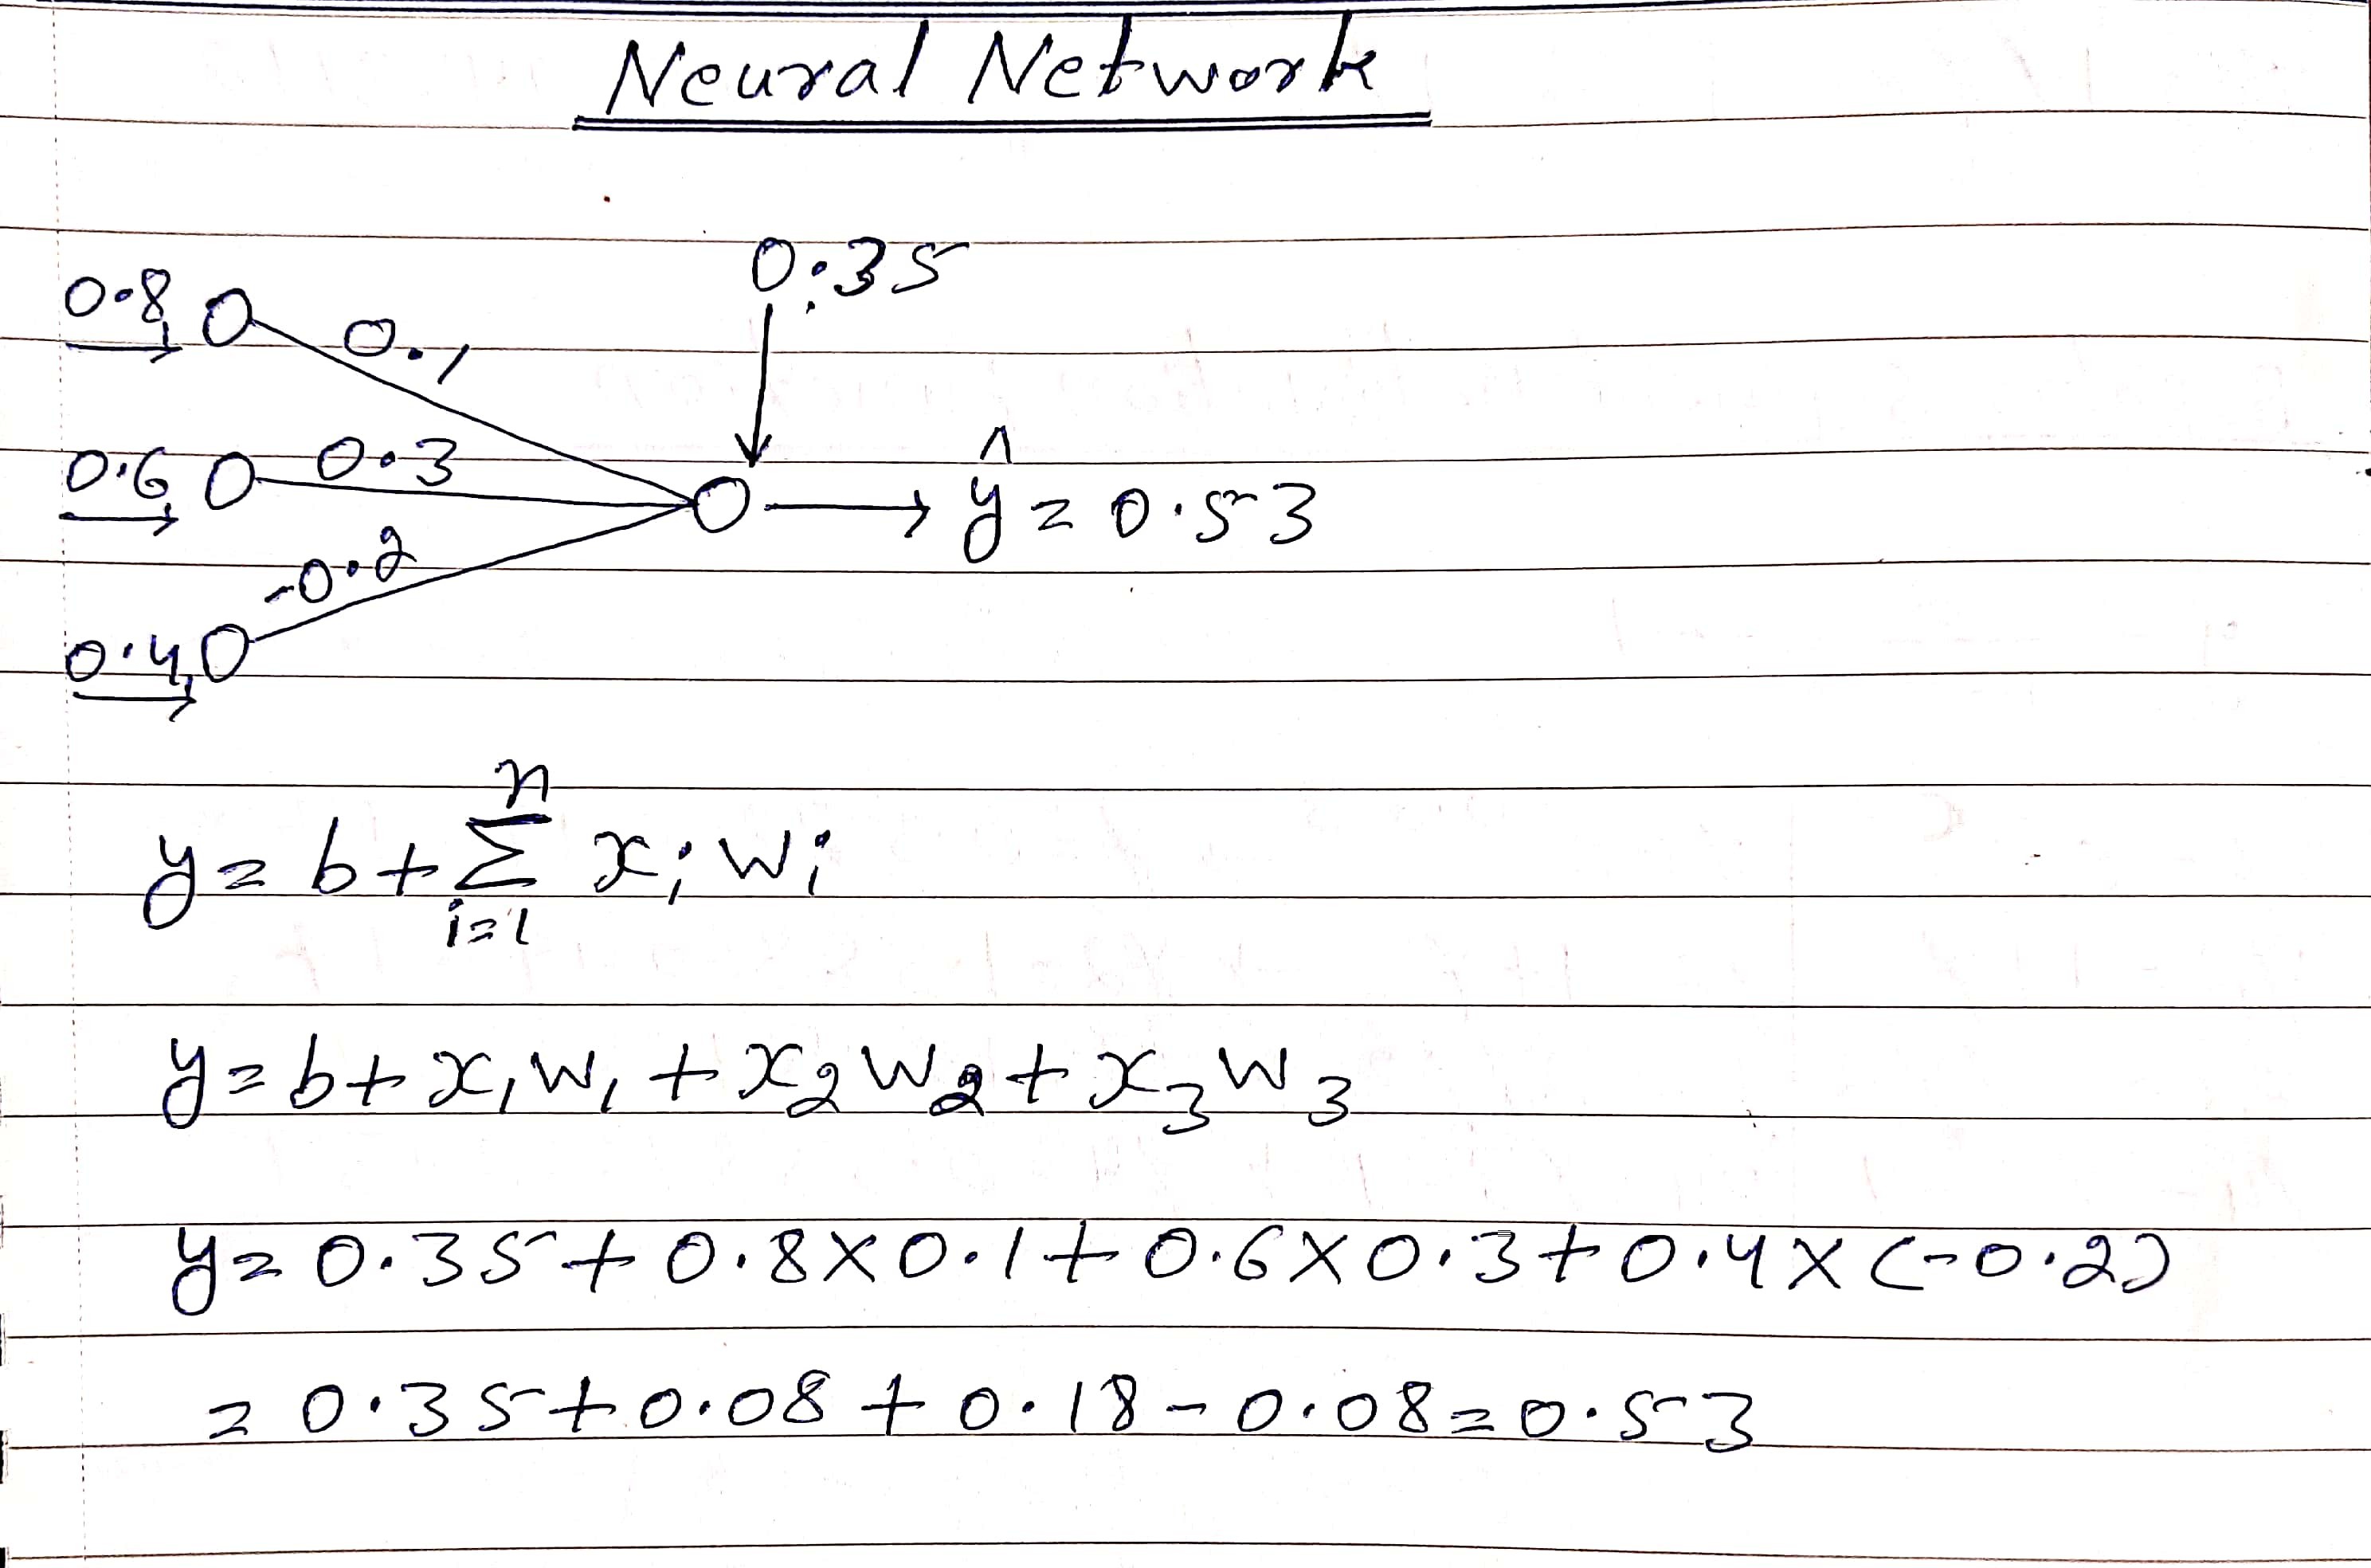 Neural Network
0.35
0.8 0.1
0.6 0.3
ŷ = 0.53
-0.2
0.4
n
y = b + Σ xᵢ wᵢ
i=1
y = b + x₁w₁ + x₂w₂ + x₃w₃
y = 0.35 + 0.8 × 0.1 + 0.6 × 0.3 + 0.4 × (-0.2)
= 0.35 + 0.08 + 0.18 - 0.08 = 0.53